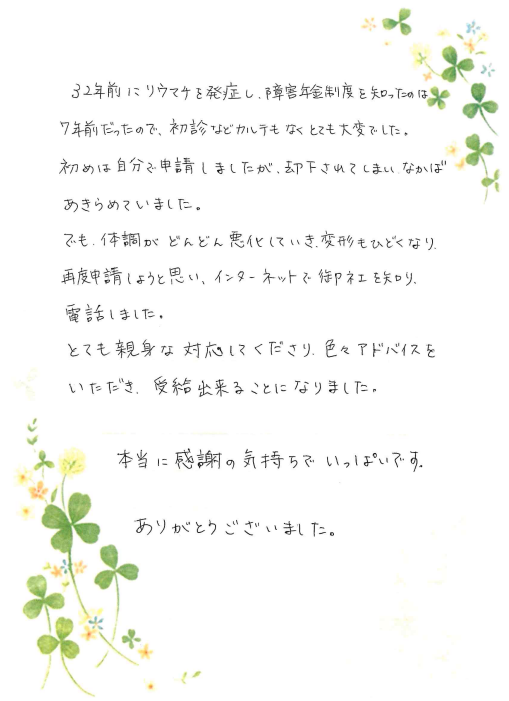 32年前にリウマチを発症し、障害年金制度を知ったのは
7年前だったので、初診などカルテもなくとても大変でした。
初めは自分で申請しましたが、却下されてしまいなかば
あきらめていました。
でも、体調がどんどん悪化していき、変形もひどくなり、
再度申請しようと思い、インターネットで御社を知り、
電話しました。
とても親身な対応してくださり、色々アドバイスを
いただき、受給出来ることになりました。
本当に感謝の気持ちでいっぱいです。
ありがとうございました。